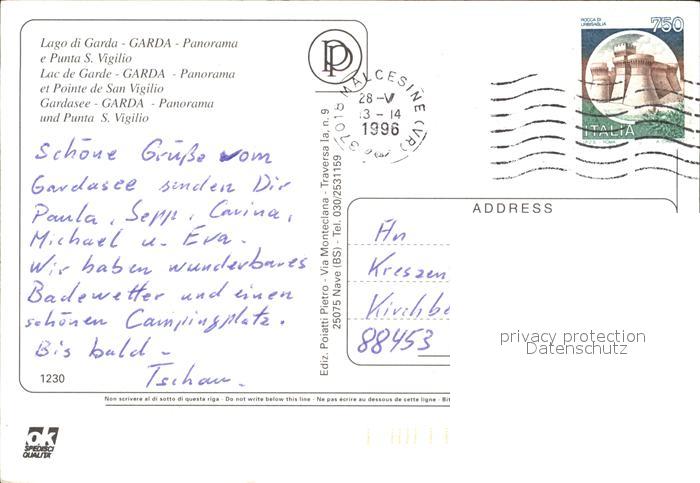 Lago di Garda - GARDA - Panorama
e Punta S. Vigilio
Lac de Garde - GARDA - Panorama
et Pointe de San Vigilio
Gardasee - GARDA - Panorama
und Punta S. Vigilio
PP
37018 MALCESINE (VR)
28-V
13-14
1996
ROCCA DI
URBISAGLIA
750
ITALIA
Schöne Grüße vom
Gardasee senden Dir
Paula, Sepp, Carina,
Michael u. Eva.
Wir haben wunderbares
Badewetter und einen
schönen Campingplatz.
Bis bald -
Tschau.
1230
Ediz. Poiatti Pietro - Via Monteclana - Traversa Ia, n. 9
25075 Nave (BS) - Tel. 030/2531159
ADDRESS
An
Kreszen
Kirchbe
88453
privacy protection
Datenschutz
Non scrivere al di sotto di questa riga - Do not write below this line - Ne pas écrire au dessous de cette ligne - Bit
ok
SPEDISCI
QUALITÀ